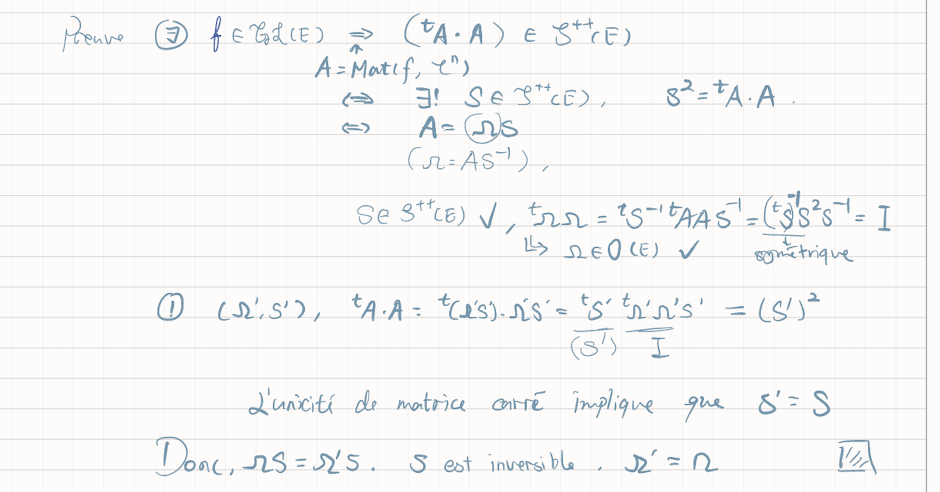 Preuve (∃) f ∈ GL(E) ⇒ (ᵗA·A) ∈ S⁺⁺(E)
↑
A = Mat(f, ℓⁿ)
⇔ ∃! S ∈ S⁺⁺(E), S² = ᵗA·A.
⇔ A = ΩS
(Ω = AS⁻¹),
S ∈ S⁺⁺(E) ✓, ᵗΩΩ = ᵗS⁻¹ ᵗAAS⁻¹ = (ᵗS)⁻¹S²S⁻¹ = I
↳ Ω ∈ O(E) ✓ symétrique
(!) (Ω', S'), ᵗA·A = ᵗ(Ω'S')·Ω'S' = ᵗS' ᵗΩ'Ω'S' = (S')²
(S') I
L'unicité de matrice carré implique que S' = S
Donc, ΩS = Ω'S. S est inversible. Ω' = Ω